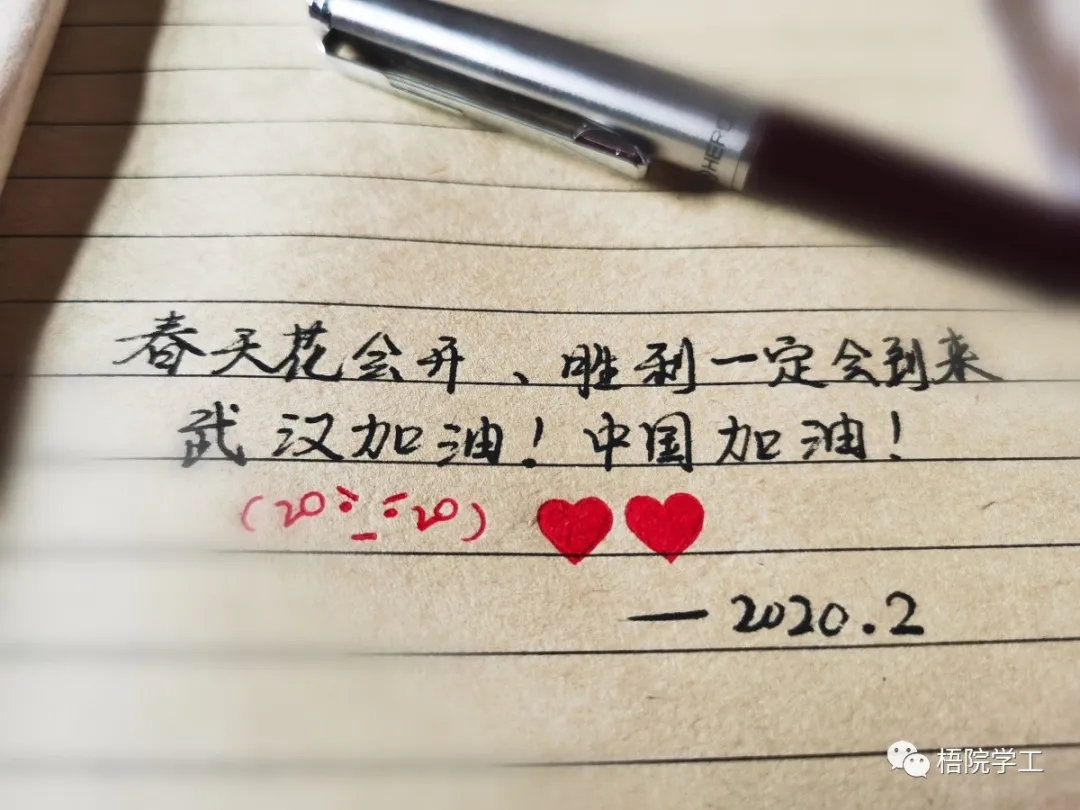 HERO
春天花会开、胜利一定会到来
武汉加油！中国加油！
(20 ÷ _ ÷ 20)
— 2020.2
梧院学工